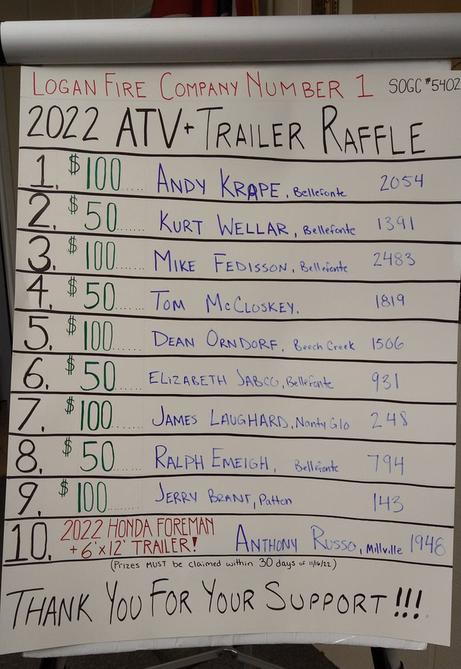 LOGAN FIRE COMPANY NUMBER 1 SOGC #5402
2022 ATV + TRAILER RAFFLE
1. $100...... ANDY KRAPE, Bellefonte 2054
2. $50...... KURT WELLAR, Bellefonte 1391
3. $100...... MIKE FEDISSON, Bellefonte 2483
4. $50...... TOM McCLOSKEY. 1819
5. $100...... DEAN ORNDORF, Beech Creek 1506
6. $50...... ELIZABETH JABCO, Bellefonte 931
7. $100...... JAMES LAUGHARD, Nanty Glo 248
8. $50...... RALPH EMEIGH, Bellefonte 794
9. $100...... JERRY BRANT, Patton 143
10. 2022 HONDA FOREMAN
+ 6'x12' TRAILER! ANTHONY RUSSO, Millville 1948
(Prizes MUST be claimed within 30 days of 11/16/22)
THANK YOU FOR YOUR SUPPORT!!!